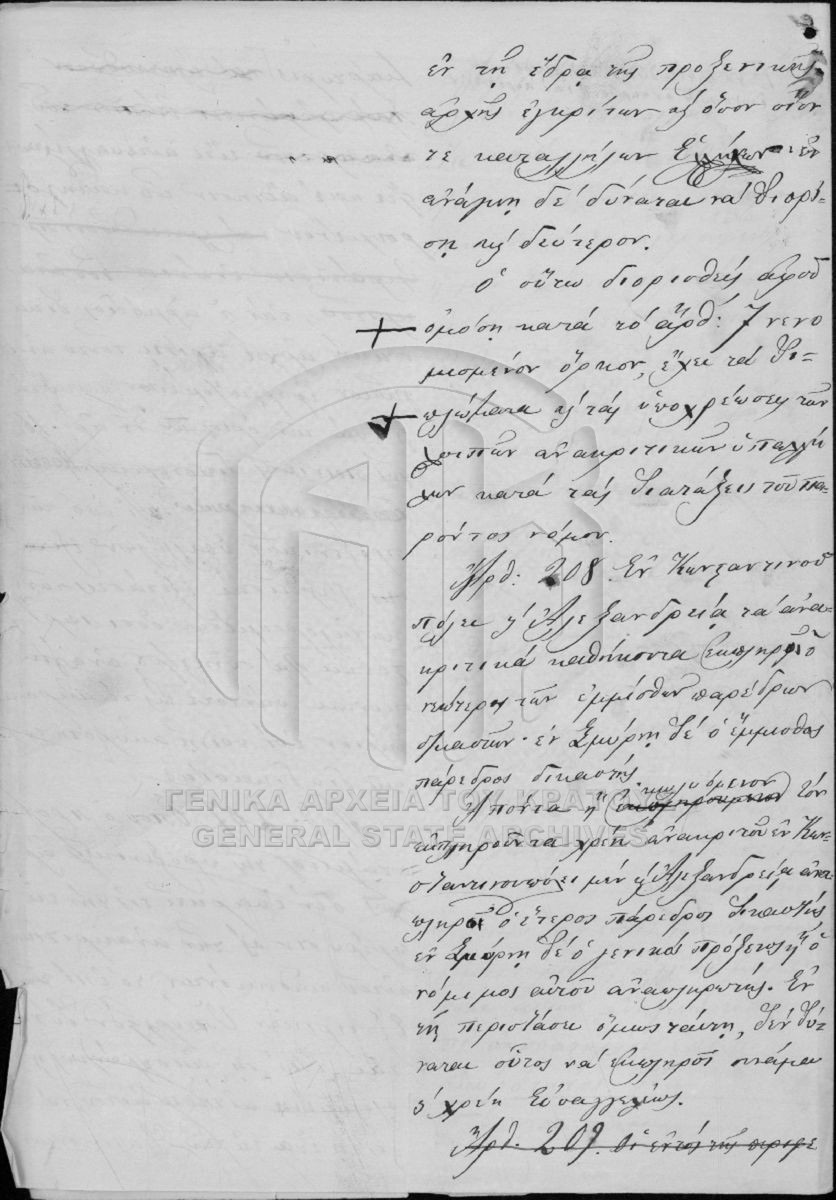 ἐν τῇ ἕδρᾳ τῆς προξενικῆς
ἀρχῆς ἐγκρίτων καὶ ὅσον οἷόν
τε καταλλήλων Ἑλλήνων· ἐν
ἀνάγκῃ δὲ δύναται νὰ διορί-
σῃ καὶ δεύτερον.
Ὁ οὕτω διορισθεὶς ἀφοῦ
ὀμόσῃ κατὰ τὸ ἄρθ: 7 νενο
μισμένον ὅρκον, ἔχει τὰ δι-
καὶ τὰς ὑποχρεώσεις τῶν
λοιπῶν ἀνακριτικῶν ὑπαλλή
λων κατὰ τὰς διατάξεις τοῦ πα-
ρόντος νόμου.
Ἄρθ: 208. Ἐν Κωνσταντινου
πόλει καὶ Ἀλεξανδρείᾳ τὰ ἀνα-
κριτικὰ καθήκοντα ἐκπληροῖ ὁ
νεώτερος τῶν ἐμμίσθων παρέδρων
δικαστῶν· ἐν Σμύρνῃ δὲ ὁ ἔμμισθος
πάρεδρος δικαστής.
κωλυόμενον
Ἀπόντα ἢ τὸν
ΓΕΝΙΚΑ ΑΡΧΕΙΑ ΤΟΥ ΚΡΑΤΟΥΣ
GENERAL STATE ARCHIVES
ἐκπληροῦντα χρέη ἀνακριτοῦ ἐν Κων-
σταντινουπόλει μὲν καὶ Ἀλεξανδρείᾳ ἀνα
πληροῖ ὁ ἕτερος πάρεδρος δικαστής
ἐν Σμύρνῃ δὲ ὁ γενικὸς πρόξενος ἢ ὁ
νόμιμος αὐτοῦ ἀναπληρωτής. Ἐν
τῇ περιστάσει ὅμως ταύτῃ, δὲν δύ-
ναται οὗτος νὰ ἐκπληροῖ συνάμα
καὶ χρέη Εἰσαγγελέως.
Ἄρθ. 209. Οἱ ἐντὸς τῆς περιφε